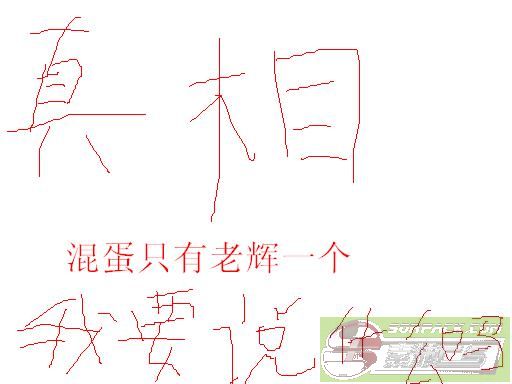 真相
混蛋只有老辉一个
我要说